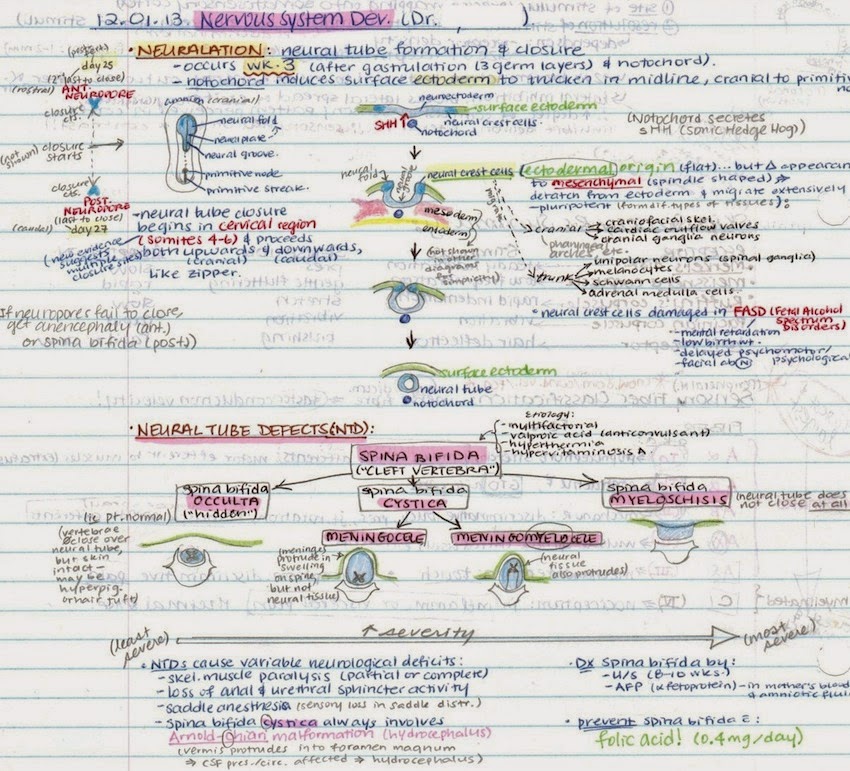 12.01.13. Nervous System Dev. (Dr. )
• NEURALATION: neural tube formation & closure
- occurs wk. 3 (after gastrulation (3 germ layers) & notochord).
- notochord induces surface ectoderm to thicken in midline, cranial to primitive
day 25
(2nd last to close)
(rostral) ANT. NEUROPORE
closure cts.
(not shown) closure starts
closure cts.
POST. NEUROPORE
(last to close)
(caudal) day 27
(new evidence suggests multiple closure sites)
amnion (cranial)
neural fold
neural plate
neural groove
primitive node
primitive streak
neuroectoderm
surface ectoderm
SHH
neural crest cells
notochord
(Notochord secretes
SHH (Sonic Hedge Hog)
neural fold
neural groove
mesoderm
endoderm
(not shown in other diagrams for simplicity)
neural crest cells (ectodermal origin (flat)... but Δ appearan
to mesenchymal (spindle shaped) ⇒
detatch from ectoderm & migrate extensively
- pluripotent (form dif. types of tissues):
migrate
cranial
craniofacial skel.
cardiac outflow valves
cranial ganglia neurons
pharyngeal arches etc.
trunk
unipolar neurons (spinal ganglia)
melanocytes
schwann cells
adrenal medulla cells.
• neural crest cells damaged in FASD (Fetal Alcohol Spectrum Disorders)
- mental retardation
- low birth wt.
- delayed psychomotor/psychological
- facial abN
- neural tube closure
begins in cervical region
(somites 4-6) & proceeds
both upwards & downwards,
(cranial) (caudal)
like zipper.
If neuropores fail to close,
get anencephaly (ant.)
or spina bifida (post.)
surface ectoderm
neural tube
notochord
• NEURAL TUBE DEFECTS (NTD):
Etiology:
- multifactorial
- valproic acid (anticonvulsant)
- hyperthermia
- hypervitaminosis A
SPINA BIFIDA
("CLEFT VERTEBRA")
spina bifida
OCCULTA
("hidden")
spina bifida
CYSTICA
spina bifida
MYELOSCHISIS
(neural tube does
not close at all
(is pt. normal)
(vertebrae
close over
neural tube,
but skin
intact -
may be
hyperpig.
or hair tuft)
MENINGOCELE
MENINGOMYELOCELE
(meninges
protrude in
swelling
on spine,
but not
neural tissue)
(neural
tissue
also protrudes)
(least severe)
↑ severity
(most severe)
• NTDs cause variable neurological deficits:
- skel. muscle paralysis (partial or complete)
- loss of anal & urethral sphincter activity
- saddle anesthesia (sensory loss in saddle distr.)
- Spina bifida cystica always involves
Arnold-Chiari malformation (hydrocephalus)
(vermis protrudes into foramen magnum
⇒ CSF pres./circ. affected ⇒ hydrocephalus)
• Dx spina bifida by:
- U/S (8-10 wks.)
- AFP (α fetoprotein) - in mother's blood
& amniotic fluid
• prevent spina bifida c̄:
folic acid! (0.4 mg/day)